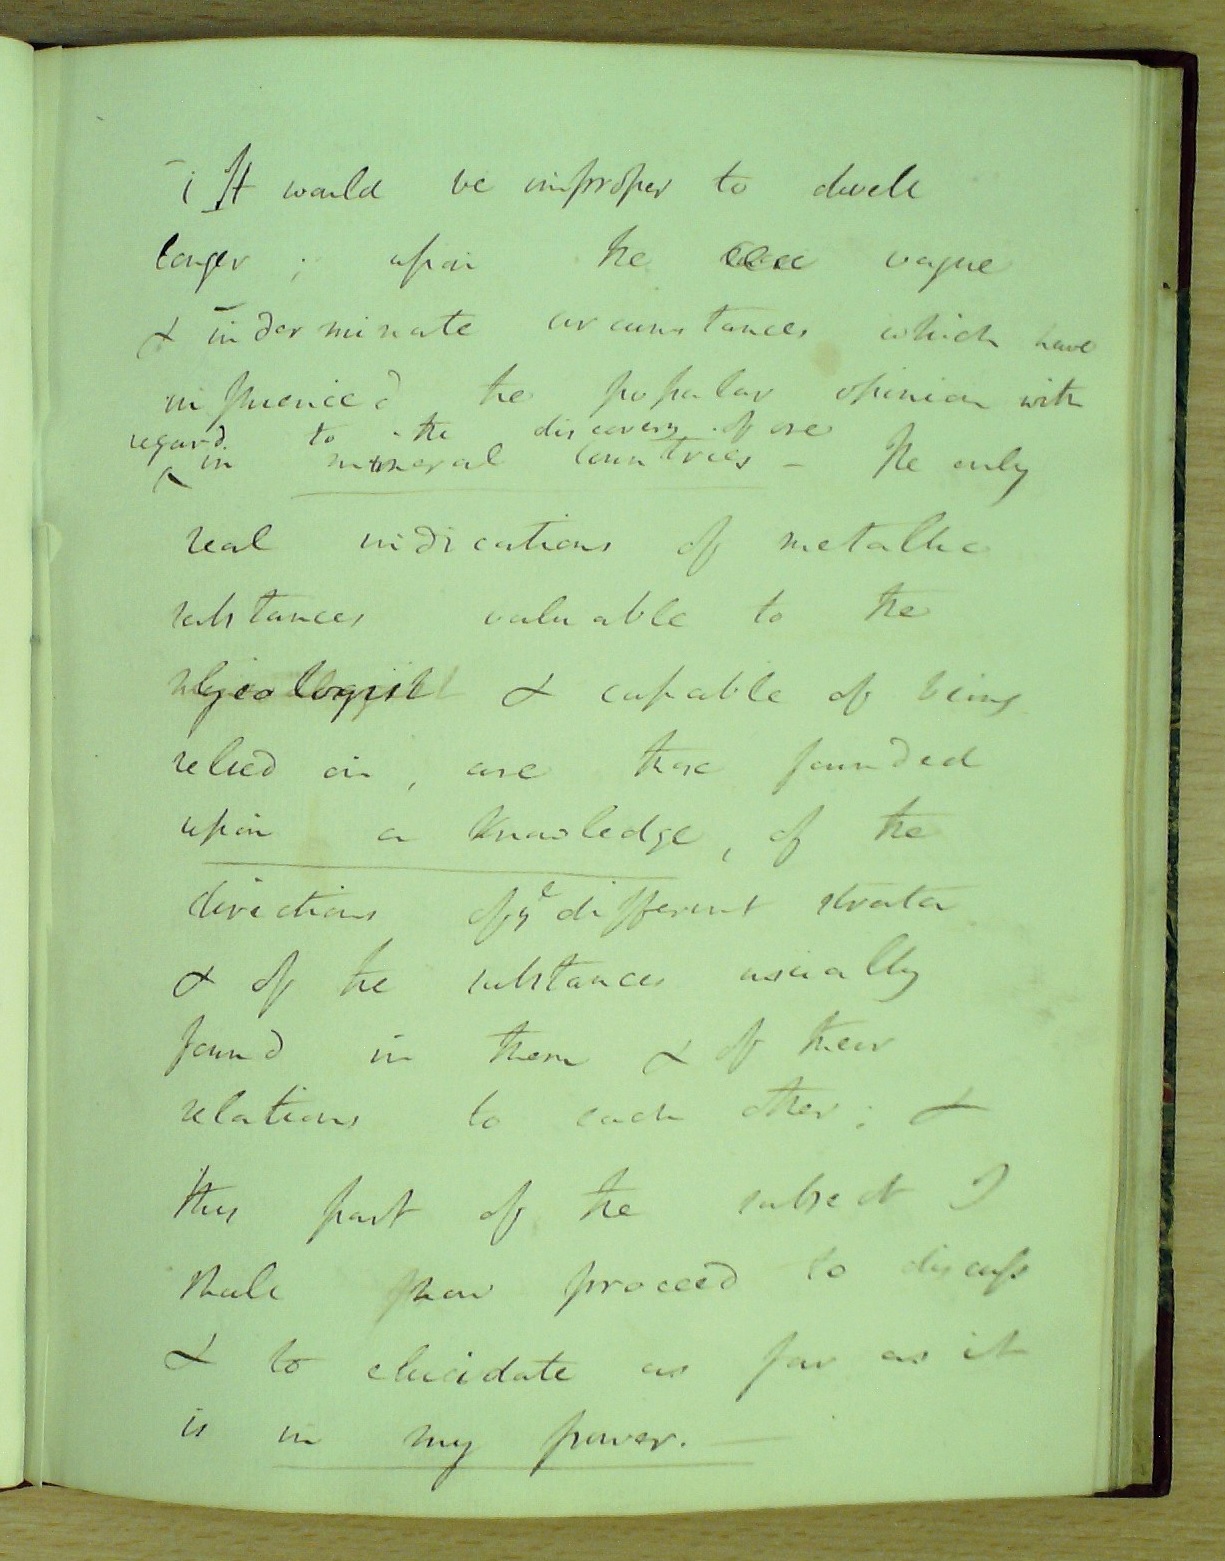 It would be improper to dwell
longer ; upon the vague
& inderminate circumstances which have
influenced the popular opinion with
regard to the discovery of ore
in mineral countries – The only
real indications of metallic
substances valuable to the
geologist & capable of being
relied on, are those founded
upon a knowledge, of the
directions of ye different strata
& of the substances usually
found in them & of their
relations to each other; &
this part of the subject I
shall now proceed to discuss
& to elucidate as far as it
is in my power. —